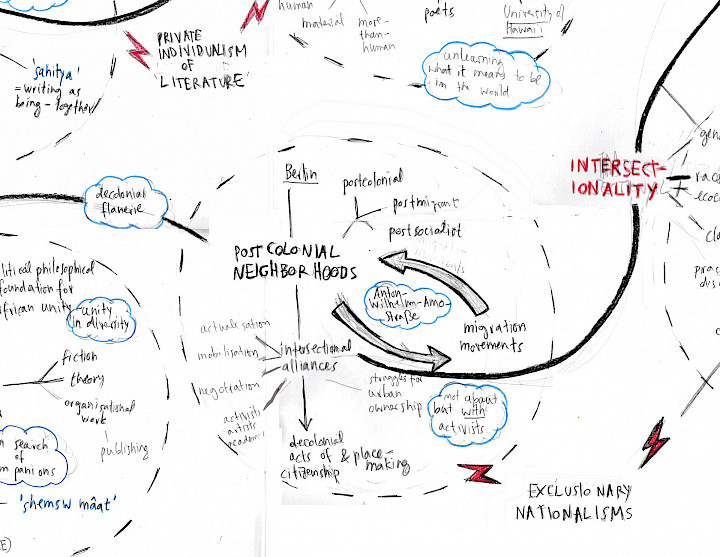 human
material
more-
than-
human
poets
University of
Hawai'i
unlearning
what it means to be
in the world
PRIVATE
INDIVIDUALISM
OF
'LITERATURE'
'sahitya'
= writing as
being-together
decolonial
flanerie
Berlin
postcolonial
postmigrant
postsocialist
POSTCOLONIAL
NEIGHBORHOODS
Anton-
Wilhelm-Amo-
Straße
migration
movements
INTERSECT-
IONALITY
race
political philosophical
foundation for
african unity
unity
in diversity
fiction
theory
organisational
work
publishing
search
of
'shemsw mâat'
actualisation
mobilisation
negotiation
activists
artists
academics
intersectional
alliances
struggles for
urban
ownership
not about
but with
activists
decolonial
acts of & place-
citizenship making
EXCLUSIONARY
NATIONALISMS